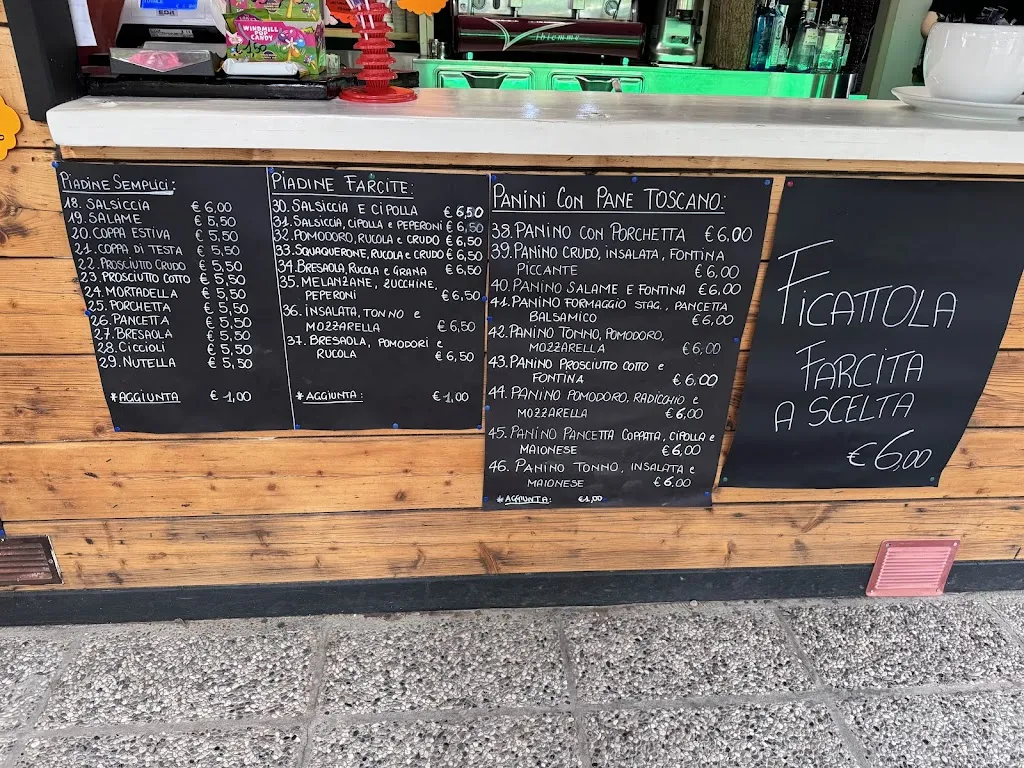 WINDMILL
POP
CANDY
€1,50
Vibiemme
PIADINE SEMPLICI:
18. SALSICCIA € 6,00
19. SALAME € 5,50
20. COPPA ESTIVA € 5,50
21. COPPA DI TESTA € 5,50
22. PROSCIUTTO CRUDO € 5,50
23. PROSCIUTTO COTTO € 5,50
24. MORTADELLA € 5,50
25. PORCHETTA € 5,50
26. PANCETTA € 5,50
27. BRESAOLA € 5,50
28. CICCIOLI € 5,50
29. NUTELLA € 5,50
*AGGIUNTA € 1,00
PIADINE FARCITE:
30. SALSICCIA E CIPOLLA € 6,50
31. SALSICCIA, CIPOLLA e PEPERONI € 6,50
32. POMODORO, RUCOLA e CRUDO € 6,50
33. SQUAQUERONE, RUCOLA e CRUDO € 6,50
34. BRESAOLA, RUCOLA e GRANA € 6,50
35. MELANZANE, ZUCCHINE,
PEPERONI € 6,50
36. INSALATA, TONNO e
MOZZARELLA € 6,50
37. BRESAOLA, POMODORI e
RUCOLA € 6,50
*AGGIUNTA: € 1,00
PANINI CON PANE TOSCANO:
38. PANINO CON PORCHETTA € 6.00
39. PANINO CRUDO, INSALATA, FONTINA
PICCANTE € 6,00
40. PANINO SALAME E FONTINA € 6,00
41. PANINO FORMAGGIO STAG., PANCETTA
BALSAMICO € 6,00
42. PANINO TONNO, POMODORO,
MOZZARELLA € 6,00
43. PANINO PROSCIUTTO COTTO e
FONTINA € 6.00
44. PANINO POMODORO, RADICCHIO e
MOZZARELLA € 6,00
45. PANINO PANCETTA COPPATA, CIPOLLA e
MAIONESE € 6,00
46. PANINO TONNO, INSALATA e
MAIONESE € 6.00
*AGGIUNTA: €1,00
FICATTOLA
FARCITA
A SCELTA
€ 6,00